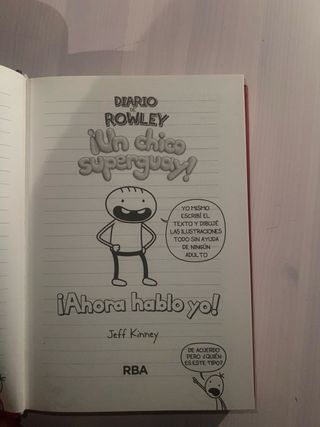 DIARIO
DE
ROWLEY
¡Un chico
superguay!
YO MISMO
ESCRIBÍ EL
TEXTO Y DIBUJÉ
LAS ILUSTRACIONES
TODO SIN AYUDA
DE NINGÚN
ADULTO
¡Ahora hablo yo!
Jeff Kinney
DE ACUERDO
PERO ¿QUIÉN
ES ESTE TIPO?
RBA